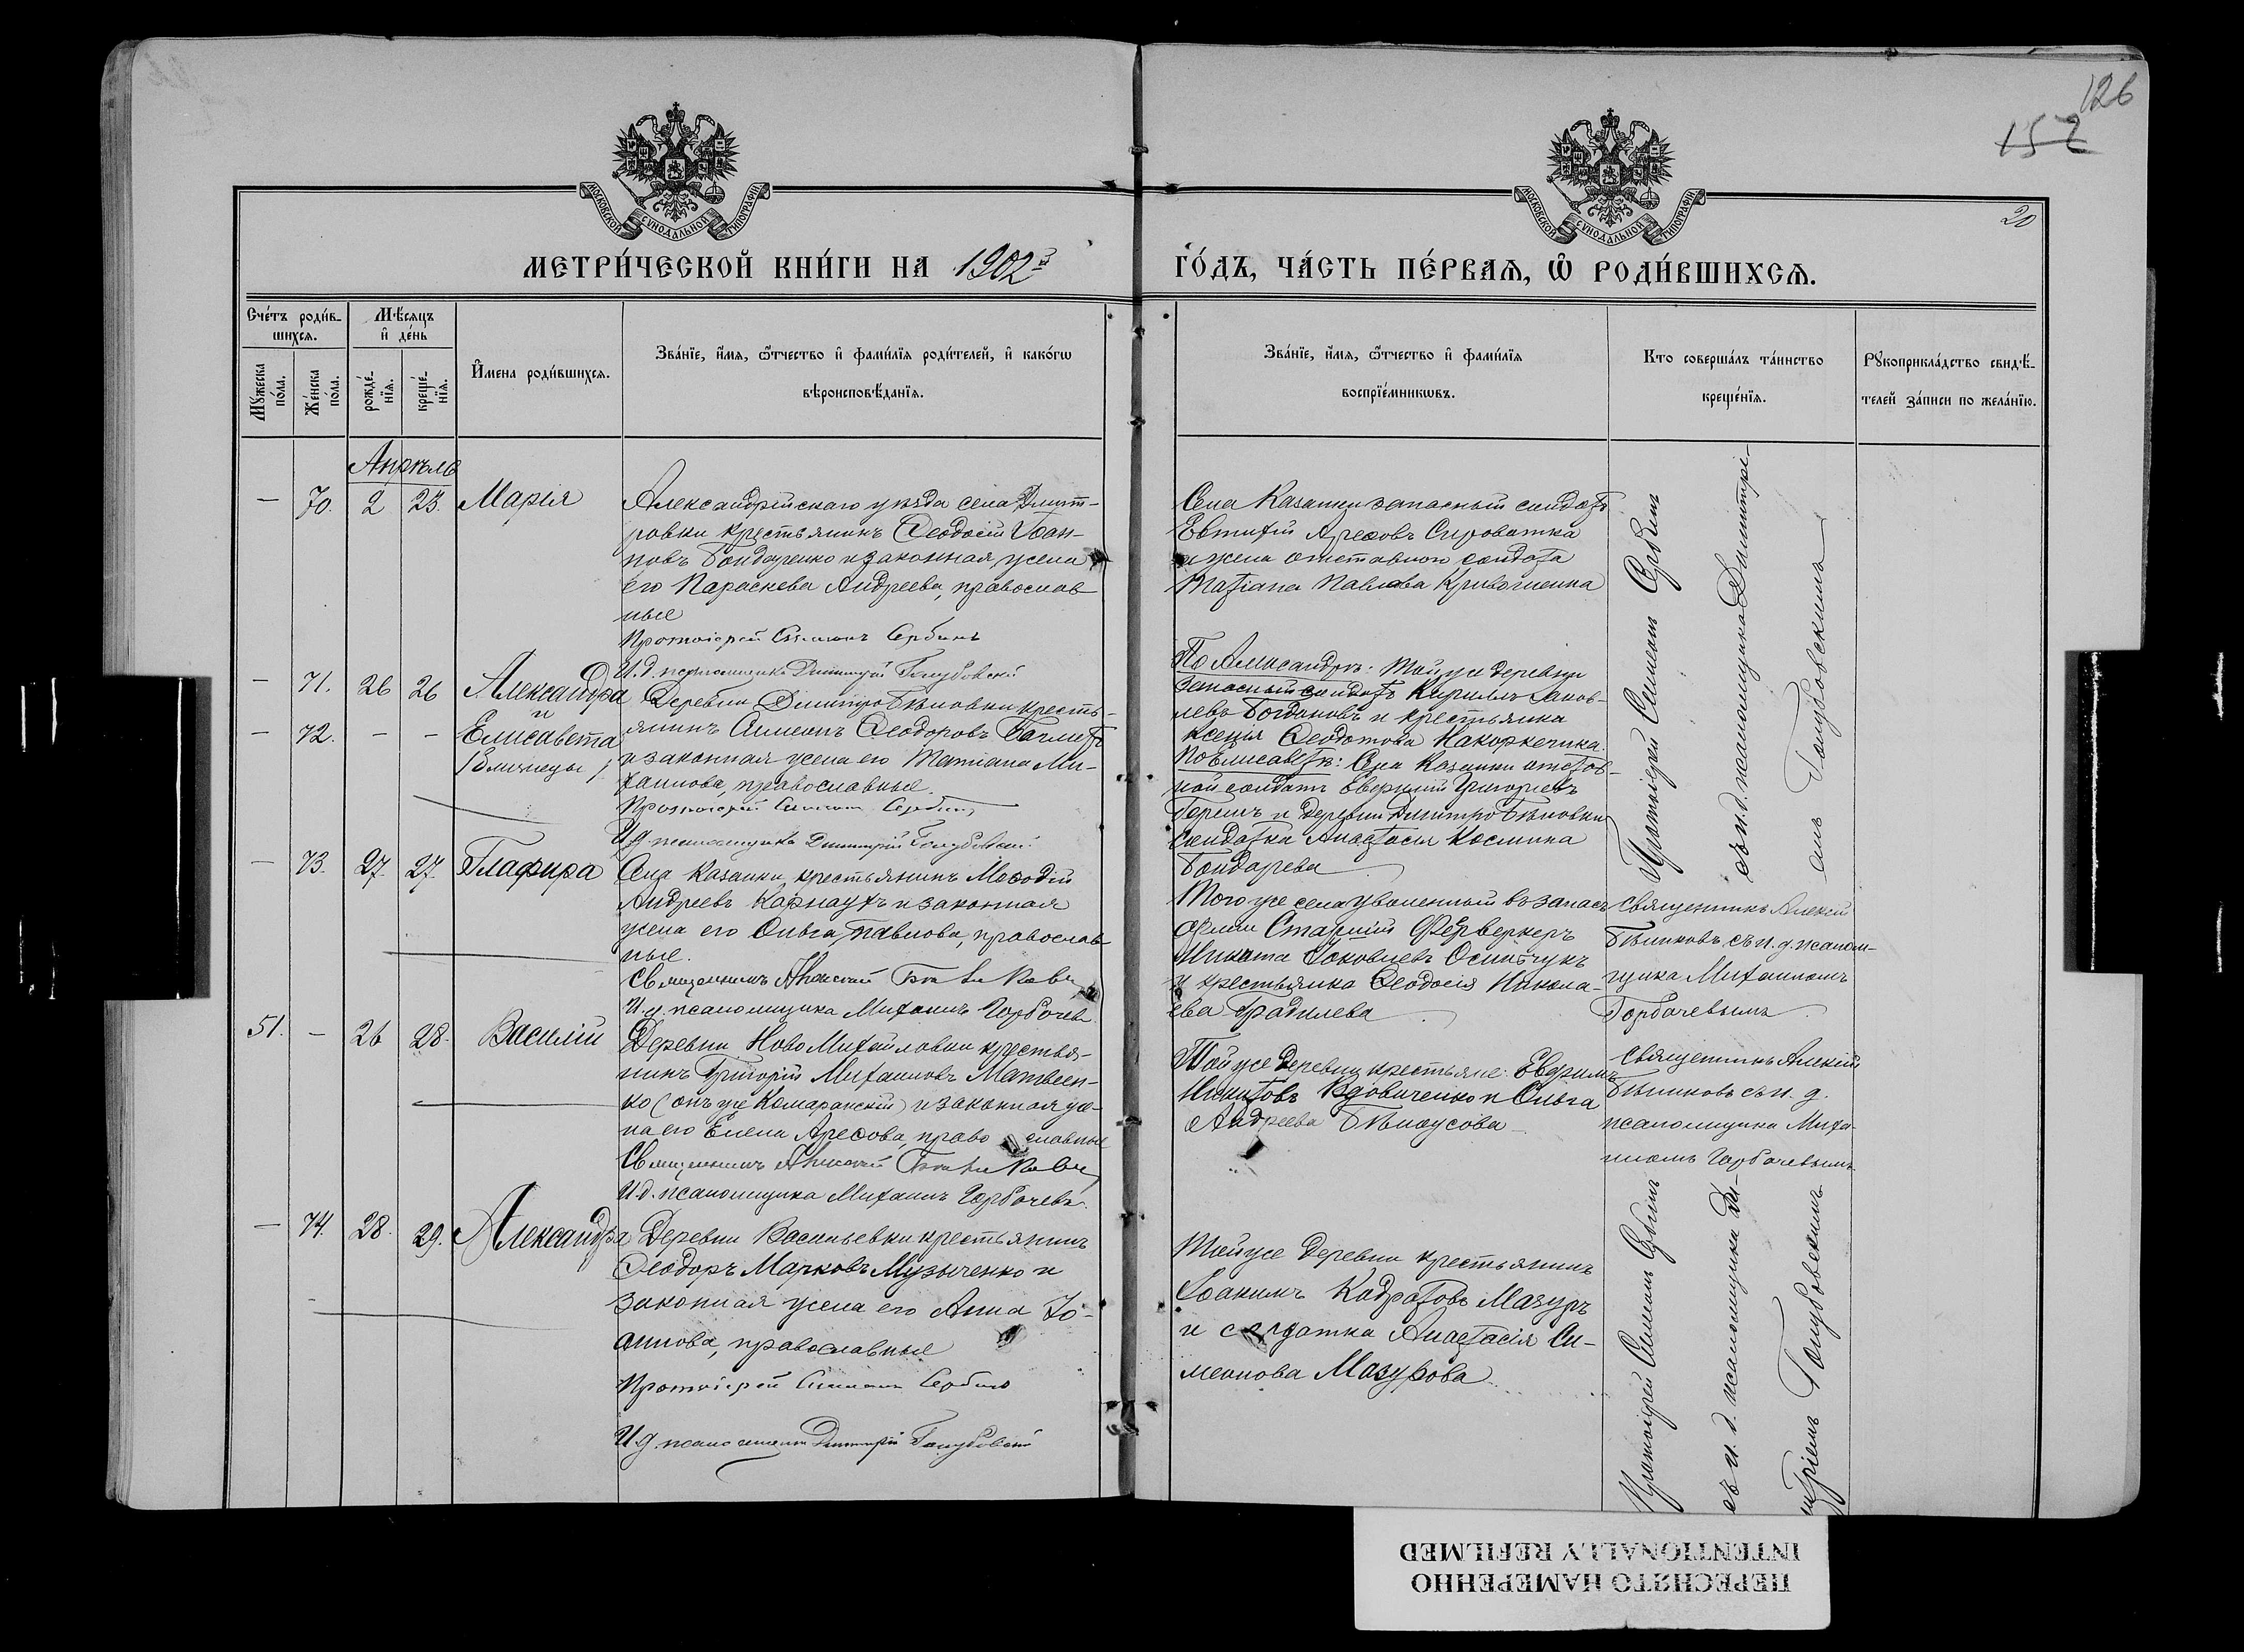 126
152
20
МОСКОВСКОЙ СУНОДАЛЬНОЙ ТИПОГРАФІИ
МОСКОВСКОЙ СУНОДАЛЬНОЙ ТИПОГРАФІИ
МЕТРИ́ЧЕСКОЙ КНИ́ГИ НА 1902й
ГО́ДЪ, ЧА́СТЬ ПЕ́РВАѦ, Ѡ РОДИ́ВШИХСѦ.
Сче́тъ роди́в-
шихсѧ.
Мꙋ́жеска по́ла.
Же́нска по́ла.
Мѣ́сяцъ
и҆ де́нь
рожде́-
нїѧ.
креще́-
нїѧ.
И҆мена роди́вшихсѧ.
Зва́нїе, и҆́мѧ, ѻ҆́тчество и҆ фами́лїѧ роди́телей, и҆ како́гѡ
вѣроисповѣ́данїѧ.
Зва́нїе, и҆́мѧ, ѻ҆́тчество и҆ фами́лїѧ
воспрїе́мникѡвъ.
Кто соверша́лъ та́инство
креще́нїѧ.
Рꙋкоприкла́дство свидѣ́-
телей за́писи по жела́нїю.
Апрѣль
— 70. 2 23. Марія
Александрійскаго уѣзда села Дмит-
ровки крестьянинъ Ѳеодосій Іоан-
новъ Бондаренко и законная жена
его Параскева Андреева, православ-
ные
Протоіерей Симеонъ Сербинъ
И.д. псаломщика Димитрій Голубовскій
Села Казанки запасный солдатъ
Евтихій Ареѳовъ Сироватка
и жена отставного солдата
Татіана Павлова
Протоіерей Симеонъ Сербинъ
съ и. д. псаломщика Димитрі-
емъ Голубовскимъ
— 71. 26 26 Александра
и
— 72. — — Елисавета
/близнецы/
Деревни Димитро Бѣловки кресть-
янинъ Симеонъ Ѳеодоровъ
и законная жена его Татіана Ми-
хаилова, православные.
Протоіерей Симеонъ Сербинъ
И.д. псаломщика Димитрій Голубовскій
По Александрѣ: Той же деревни
запасный солдатъ Кириллъ Іаков-
левъ Богдановъ и крестьянка
Ксенія Ѳеодотова
По Елисаветѣ: Села Казанки отстав-
ной солдатъ Григорьевъ
и деревни Димитро Бѣловки
солдатка Анастасія Космина
Бондарева
— 73. 27. 27. Глафира
Села Казанки, крестьянинъ Меѳодій
Андреевъ Карнаухъ и законная
жена его Ольга Павлова, православ-
ные.
Священникъ Алексій Бѣликовъ
И.д. псаломщика Михаилъ Горбачевъ
Того же села уволенный въ запасъ
арміи Старшій Фейерверкеръ
Никита Іаковлевъ Осипчукъ
и крестьянка Ѳеодосія Никола-
ева Градилева
Священникъ Алексій
Бѣликовъ, съ и. д. псалом-
щика Михаиломъ
Горбачевымъ
51. — 26 28. Василій
Деревни Ново Михайловки крестья-
нинъ Григорій Михаиловъ Матвеен-
ко (онъ же Комаранскій) и законная же-
на его Елена Ареѳова, православные
Священникъ Алексій Бѣликовъ
И.д. псаломщика Михаилъ Горбачевъ.
Той же деревни крестьяне: Евфимъ
Никитовъ Вдовиченко и Ольга
Андреева Бѣлоусова
Священникъ Алексій
Бѣликовъ съ и. д.
псаломщика Миха-
иломъ Горбачевымъ
— 74. 28. 29. Александра
Деревни Васильевки крестьянинъ
Ѳеодоръ Марковъ Музыченко и
законная жена его Анна Іо-
аннова, православные
Протоіерей Симеонъ Сербинъ
И.д. псаломщика Димитрій Голубовскій
Той же деревни крестьянинъ
Іоакимъ Кодратовъ Мазуръ
и солдатка Анастасія Си-
меонова Мазурова
Протоіерей Симеонъ Сербинъ
съ и. д. псаломщика Ди-
митріемъ Голубовскимъ
ПЕРЕСНЯТО НАМЕРЕННО
INTENTIONALLY REFILMED